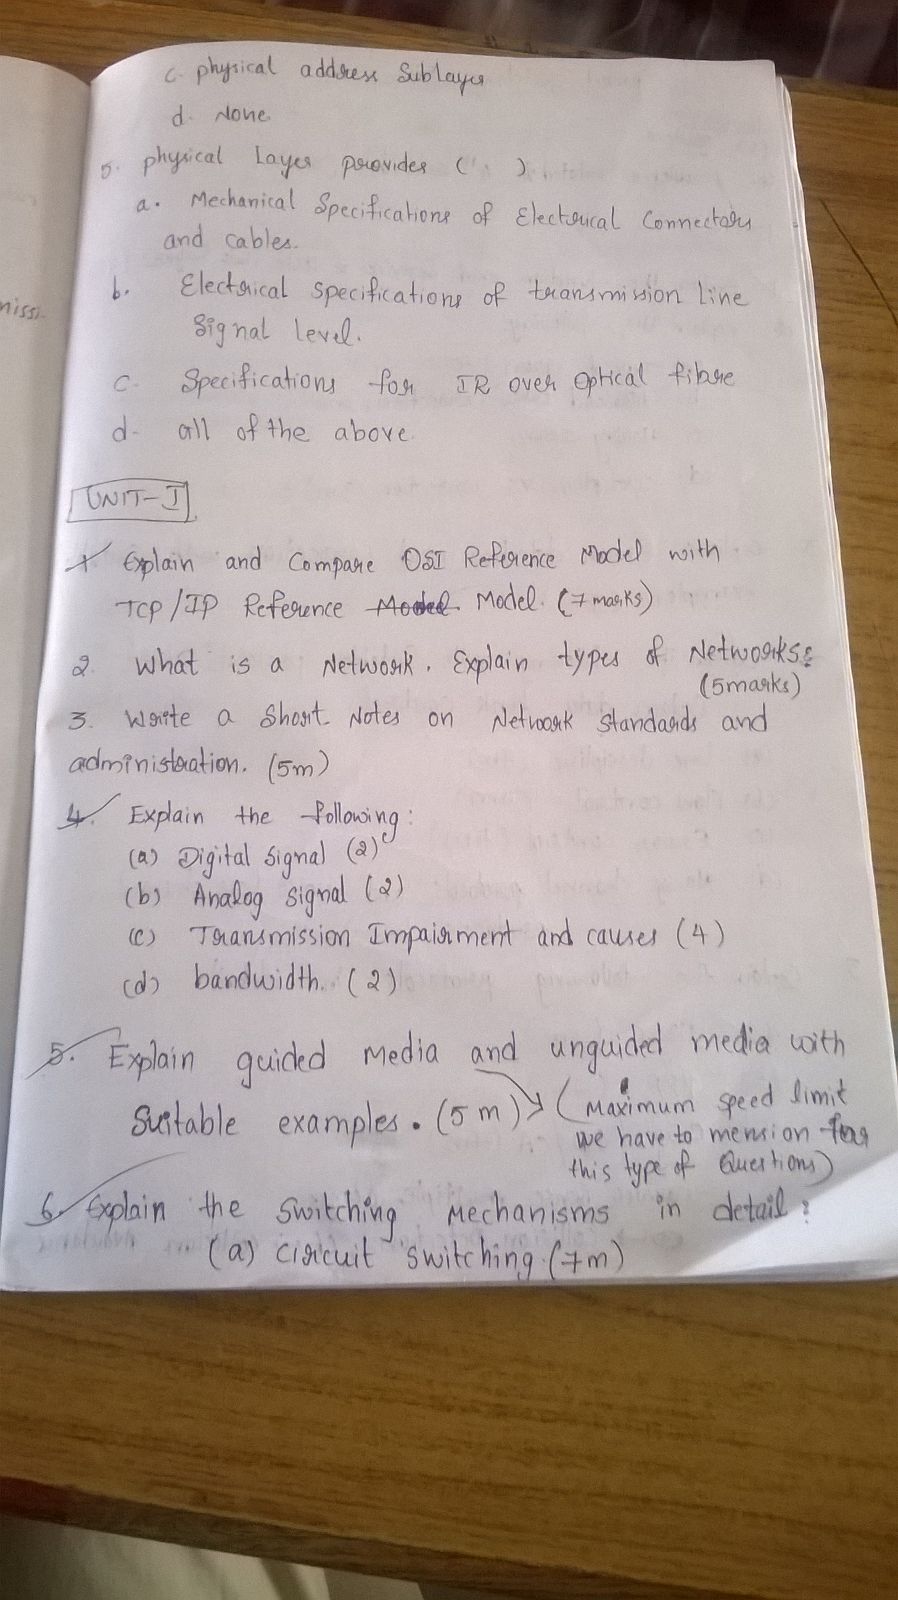 c. physical address Sublayer
d. None
5. physical Layer provides ( )
a. Mechanical Specifications of Electrical Connectors
and cables.
b. Electrical specifications of transmission line
Signal level.
c. Specifications for IR over optical fibre
d. all of the above.
UNIT-I
1. Explain and Compare OSI Reference Model with
TCP/IP Reference Model Model. (7 marks)
2. What is a Network. Explain types of Networks?
(5marks)
3. Write a Short Notes on Network Standards and
administration. (5m)
4. Explain the following:
(a) Digital signal (2)
(b) Analog signal (2)
(c) Transmission Impairment and causes (4)
(d) bandwidth. (2)
5. Explain guided Media and unguided media with
Suitable examples. (5m) → (Maximum speed limit
we have to mension for
this type of Questions)
6. Explain the switching Mechanisms in detail?
(a) circuit switching (7m)